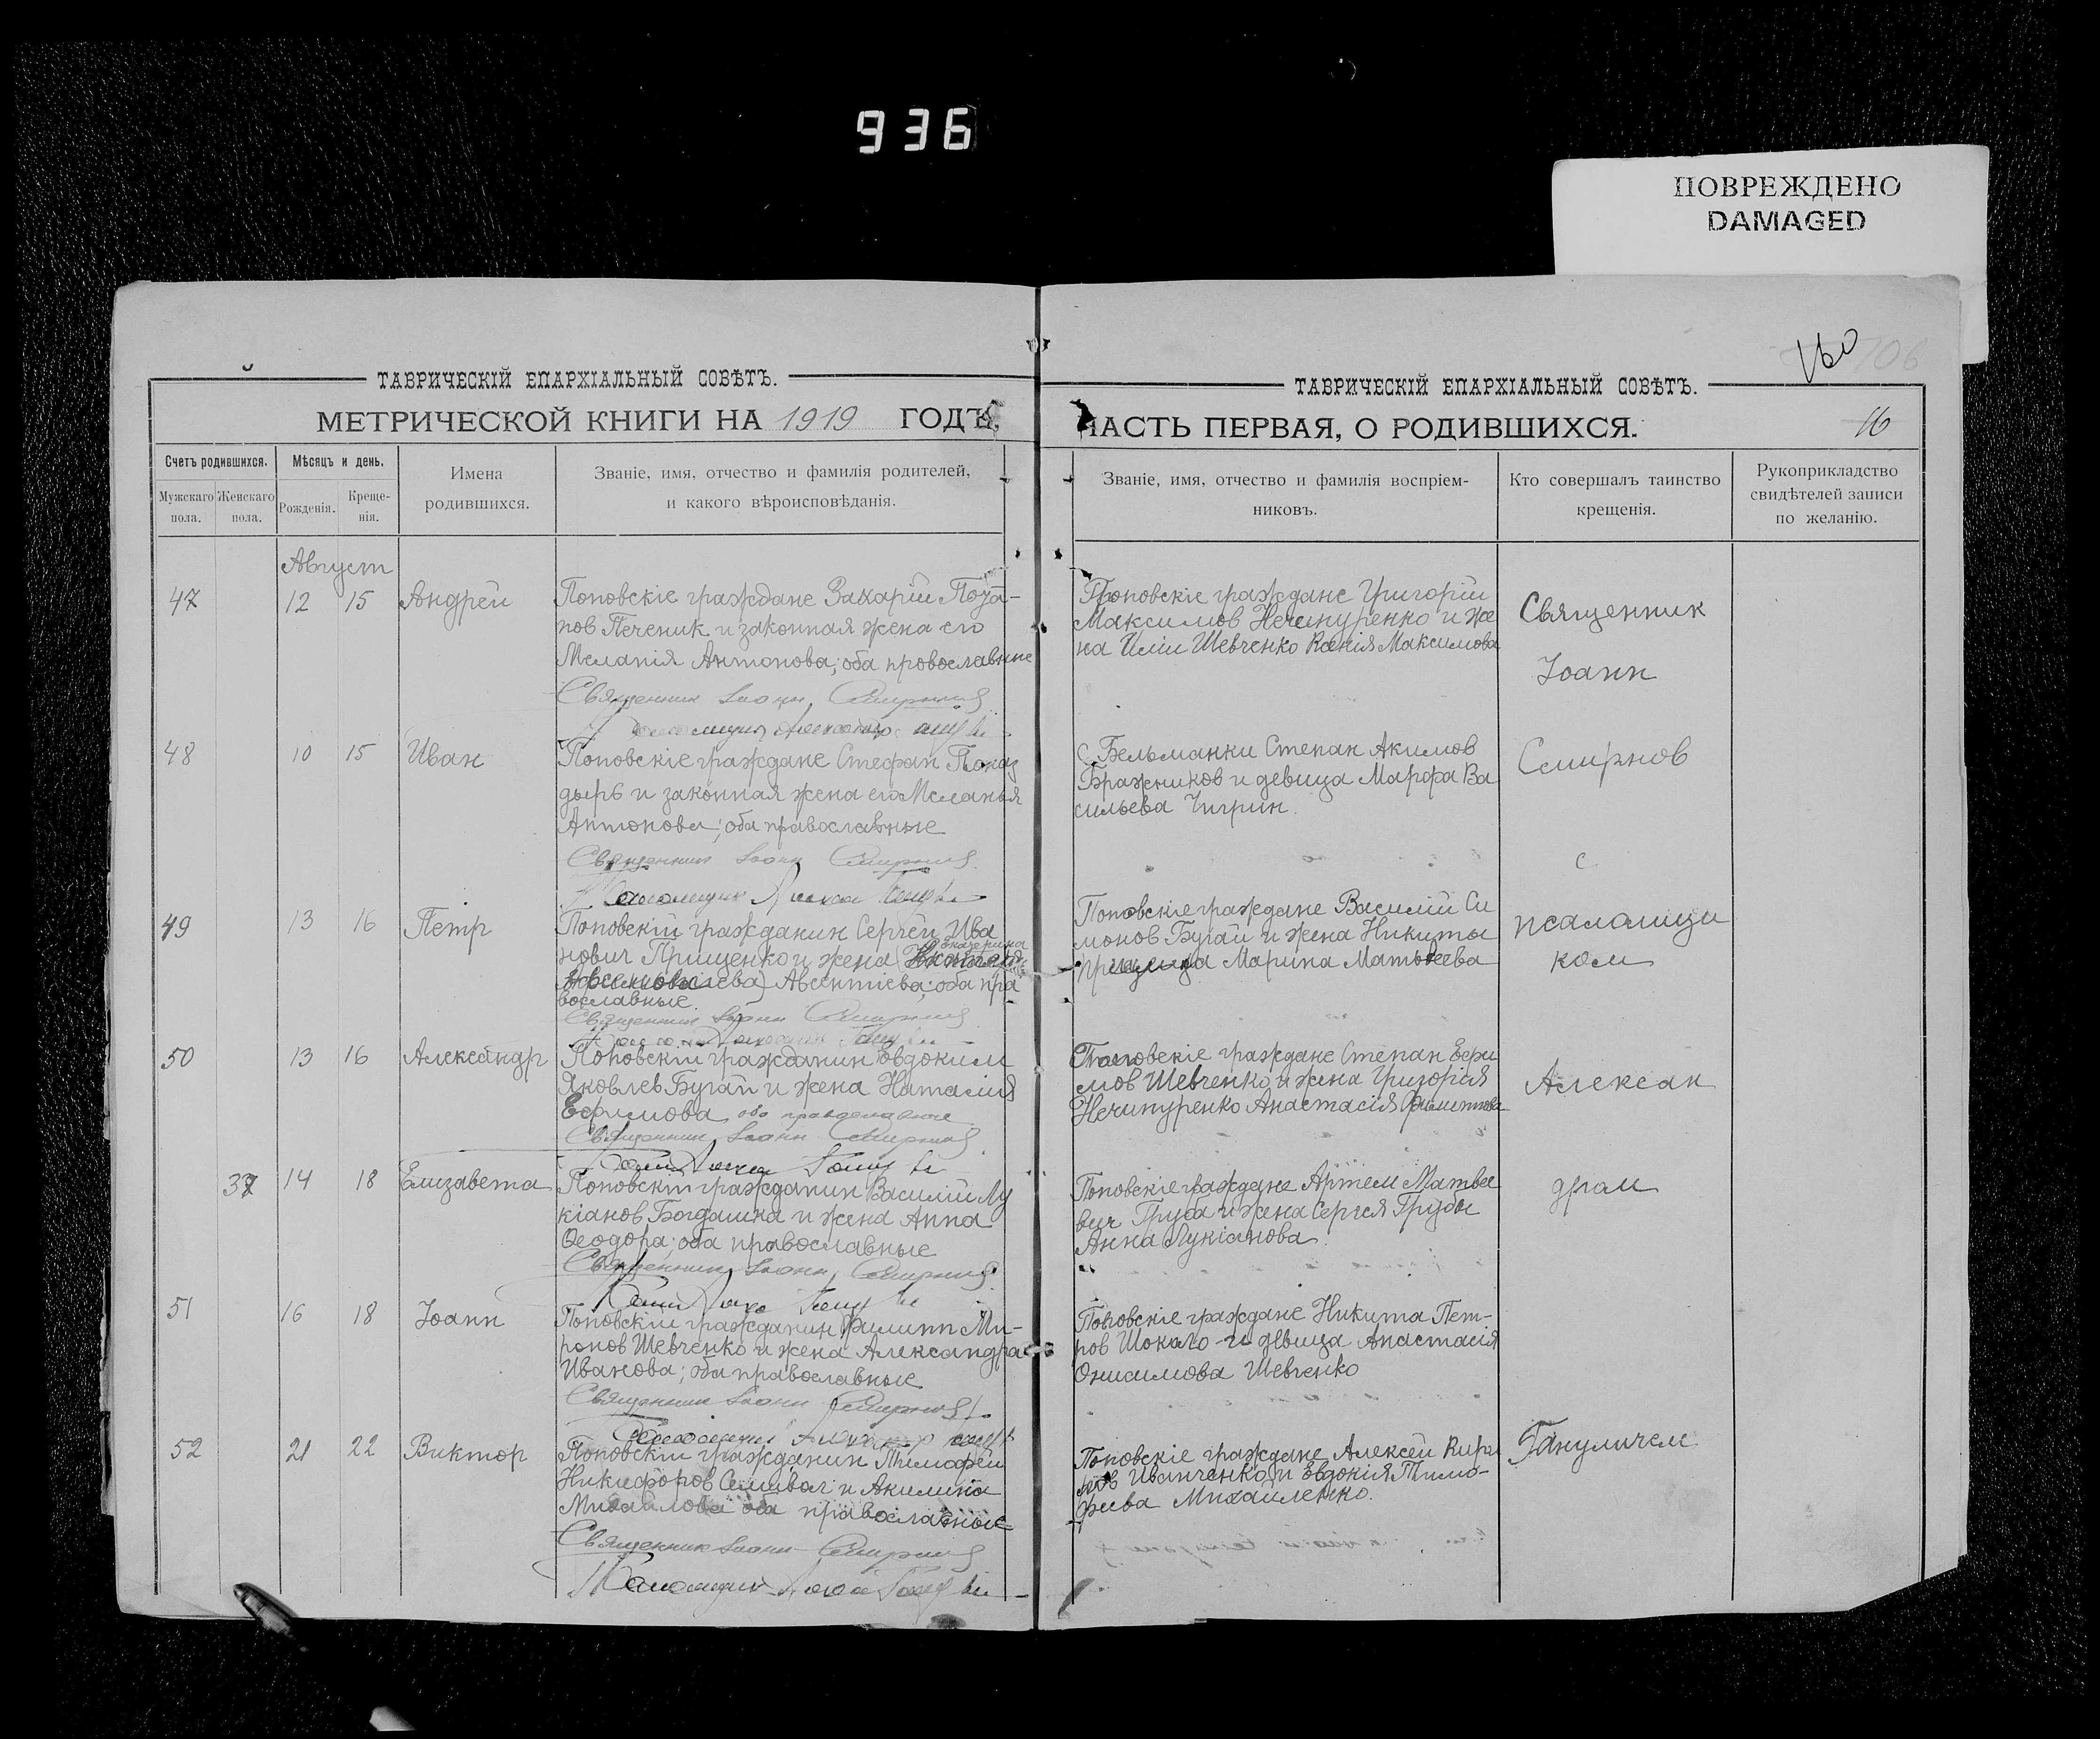 936
ПОВРЕЖДЕНО
DAMAGED
160 106
ТАВРИЧЕСКІЙ ЕПАРХІАЛЬНЫЙ СОВѢТЪ.
МЕТРИЧЕСКОЙ КНИГИ НА 1919 ГОДЪ,
Счетъ родившихся.
Мѣсяцъ и день.
Имена
родившихся.
Званіе, имя, отчество и фамилія родителей,
и какого вѣроисповѣданія.
Мужскаго
пола.
Женскаго
пола.
Рожденія.
Креще-
нія.
Август
47 12 15 Андрей Поповскіе граждане Захарій Пота-
пов Печеник и законная жена его
Меланія Антонова; оба провославные
Священник Іоанн Смирнов
48 10 15 Иван Поповскіе граждане Стефан
дырь и законная жена его Меланья
Антонова; оба православные
Священник Іоанн Смирнов
Псаломщик
49 13 16 Петр Поповскій гражданин Сергей Ива
нович Прищенко и жена Екатерина
Авсентіева; оба пра
вославные
Священник Іоанн Смирнов
50 13 16 Александр Поповскій гражданин Овдоким
Яковлев Бугай и жена Наталия
Ефимова оба православные
Священник Іоанн Смирнов
37 14 18 Елизавета Поповскій гражданин Василий Лу
кіанов Богдашка и жена Анна
Феодора; оба православные
Священник Іоанн Смирнов
51 16 18 Іоанн Поповскій гражданин Филипп Ми-
ронов Шевченко и жена Александра
Иванова; оба православные
Священник Іоанн Смирнов
52 21 22 Виктор Поповскій гражданин Тимофей
Никифоров Семивол и Акилина
Михайлова оба православные
Священник Іоанн Смирнов
Псаломщик
ТАВРИЧЕСКІЙ ЕПАРХІАЛЬНЫЙ СОВѢТЪ.
ЧАСТЬ ПЕРВАЯ, О РОДИВШИХСЯ.
16
Званіе, имя, отчество и фамилія воспріем-
никовъ.
Кто совершалъ таинство
крещенія.
Рукоприкладство
свидѣтелей записи
по желанію.
Поповскіе граждане Григорій
Максимов Нечипуренко и же
на Иліи Шевченко Ксенія Максимова
с. Бельманки Степан Акимов
Бражников и девица Марфа Ва
сильева Чигрин.
Поповскіе граждане Василій Си
монов Бугай и жена Никиты
Прищенка Марина Матвеева
Поповскіе граждане Степан Ефи
мов Шевченко и жена Григорія
Нечипуренко Анастасія Филиппова
Поповскіе граждане Артем Матве
вич Груба и жена Сергея Грубы
Анна Лукіанова.
Поповскіе граждане Никита Пет-
ров Шокало и девица Анастасія
Онисимова Шевченко
Поповскіе граждане Алексей Кири
лов Иванченко и Евдокія Тимо-
феева Михайленко.
Священник
Іоанн
Смирнов
с
псаломщи
ком
Алексан
дром
Гануличем